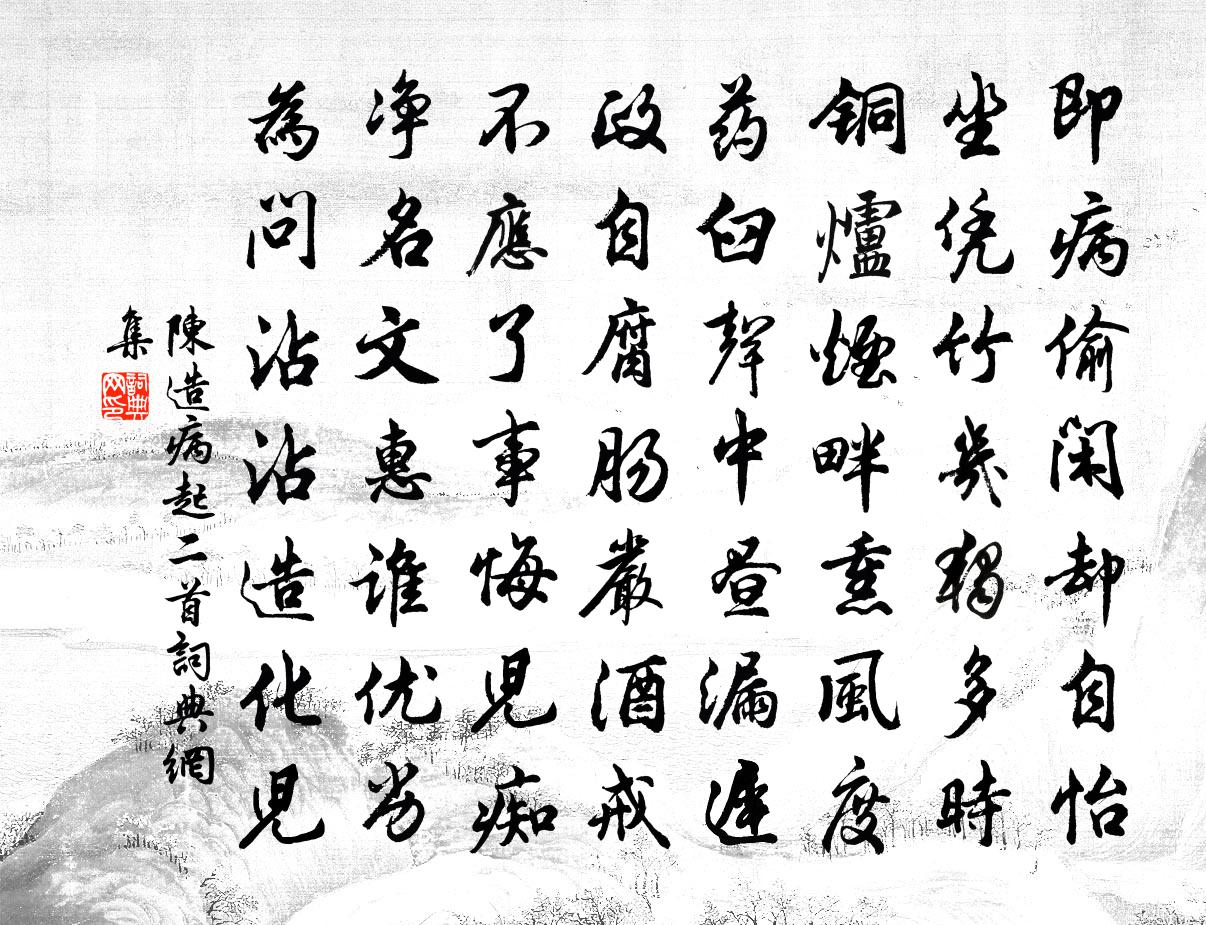 即病偷閑却自怡
坐凭竹几独多時
銅爐煙畔熏風度
药臼聲中昼漏遲
政自腐肠嚴酒戒
不應了事悔児痴
净名文惠誰优劣
為問沾沾造化児
陳造病起二首詞典網
集
詞典網印